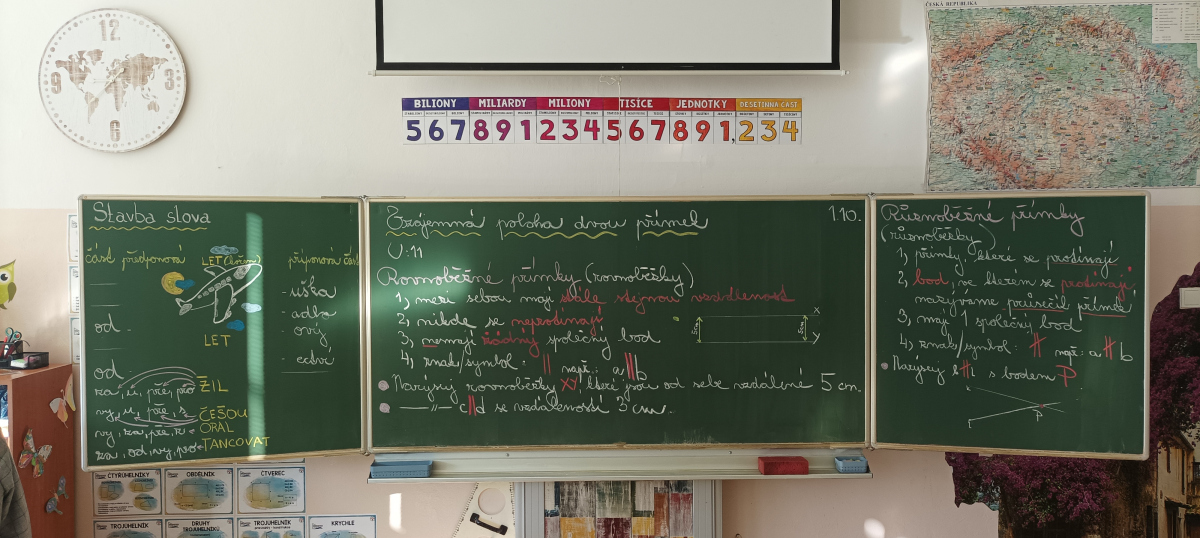 12
3
6
9
BILIONY MILIARDY MILIONY TISÍCE JEDNOTKY DESETINNÁ ČÁST
567891234567891,234
ČESKÁ REPUBLIKA
Stavba slova
část předponová
LET
příponová část
- uška
- adlo
- ový
od -
LET
od -
za, u, pře, pro ŽIL
vy, u, pře, s ČESOU
vy, za, pře, z ORAL
za, od, vy, pro TANCOVAT
Vzájemná poloha dvou přímek
1.10.
U: 11
Rovnoběžné přímky (rovnoběžky)
1, mezi sebou mají stále stejnou vzdálenost
2, nikde se neprotínají
3, nemají žádný společný bod
4, znak/symbol: || např.: a||b
x
5cm 5cm
y
Narýsuj rovnoběžky XY, které jsou od sebe vzdálené 5 cm.
—— 〃— c||d se vzdáleností 3 cm.
Různoběžné přímky
(různoběžky)
1, přímky, které se protínají
2, bod, ve kterém se protínají
nazýváme průsečík přímek
3, mají 1 společný bod
4, znak/symbol: ∦ např.: a ∦ b
Narýsuj k∦l s bodem P
P
ČTYŘÚHELNÍKY OBDÉLNÍK ČTVEREC
TROJÚHELNÍK DRUHY TROJÚHELNÍKŮ TROJÚHELNÍK KRYCHLE